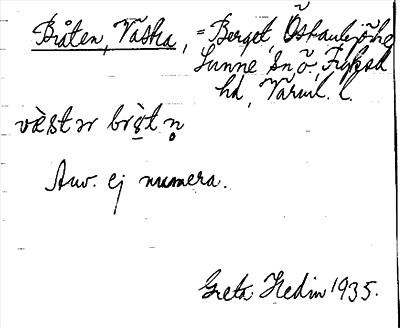 Bråten, Västra, = Berget, Östanbjörke
Sunne sn ö, Fryksd
hd, Värml. l.
væ̀stər brò̤tn̥
Anv. ej numera.
Greta Hedin 1935.